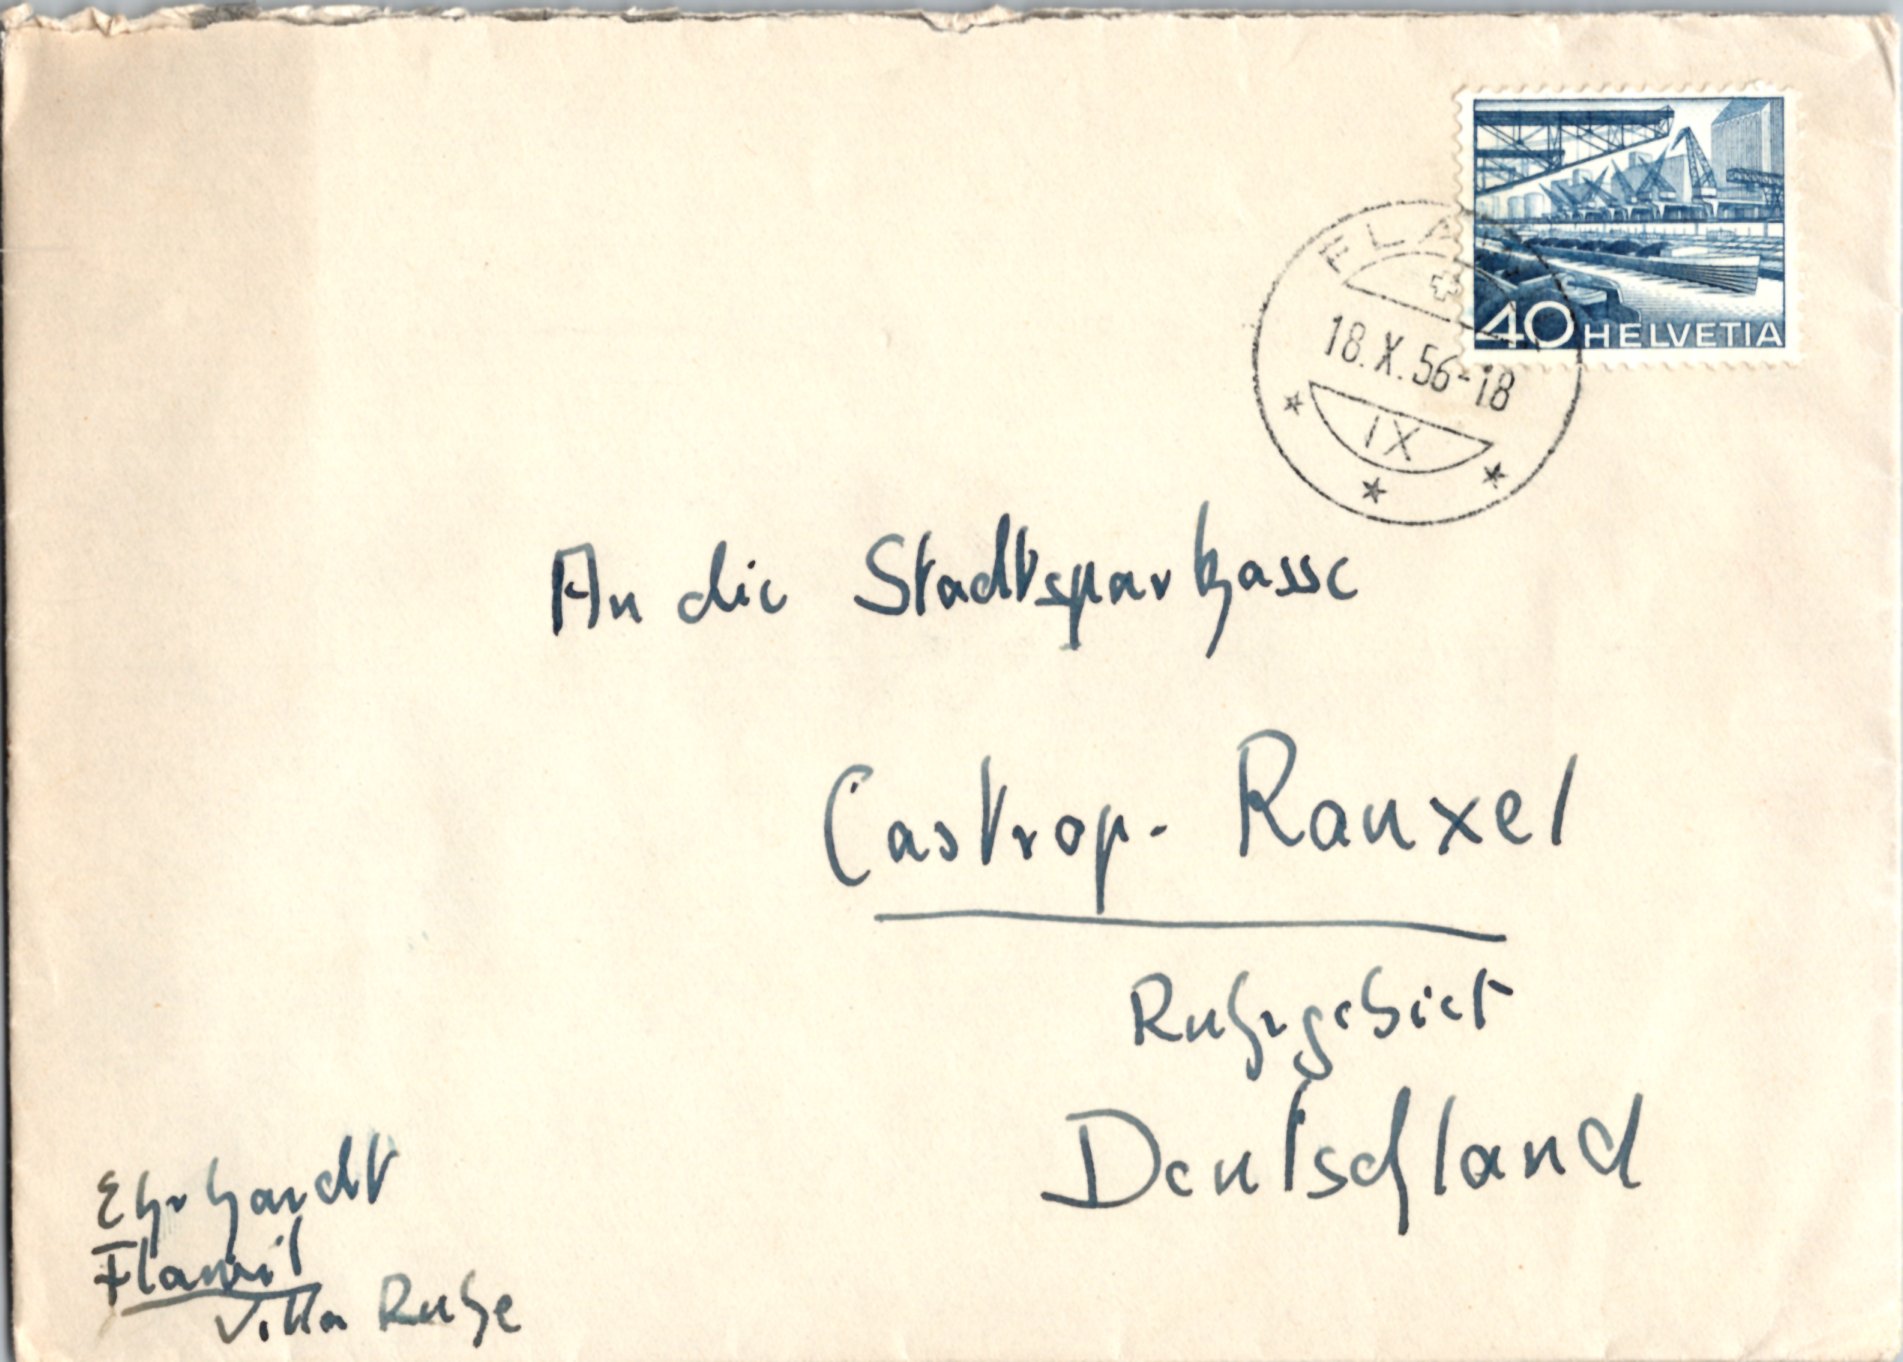 40 HELVETIA
FLA
18.X.56-18
IX
An die Stadtsparkasse
Castrop-Rauxel
Ruhrgebiet
Deutschland
Ehrhardt
Flawil
Villa Ruhe